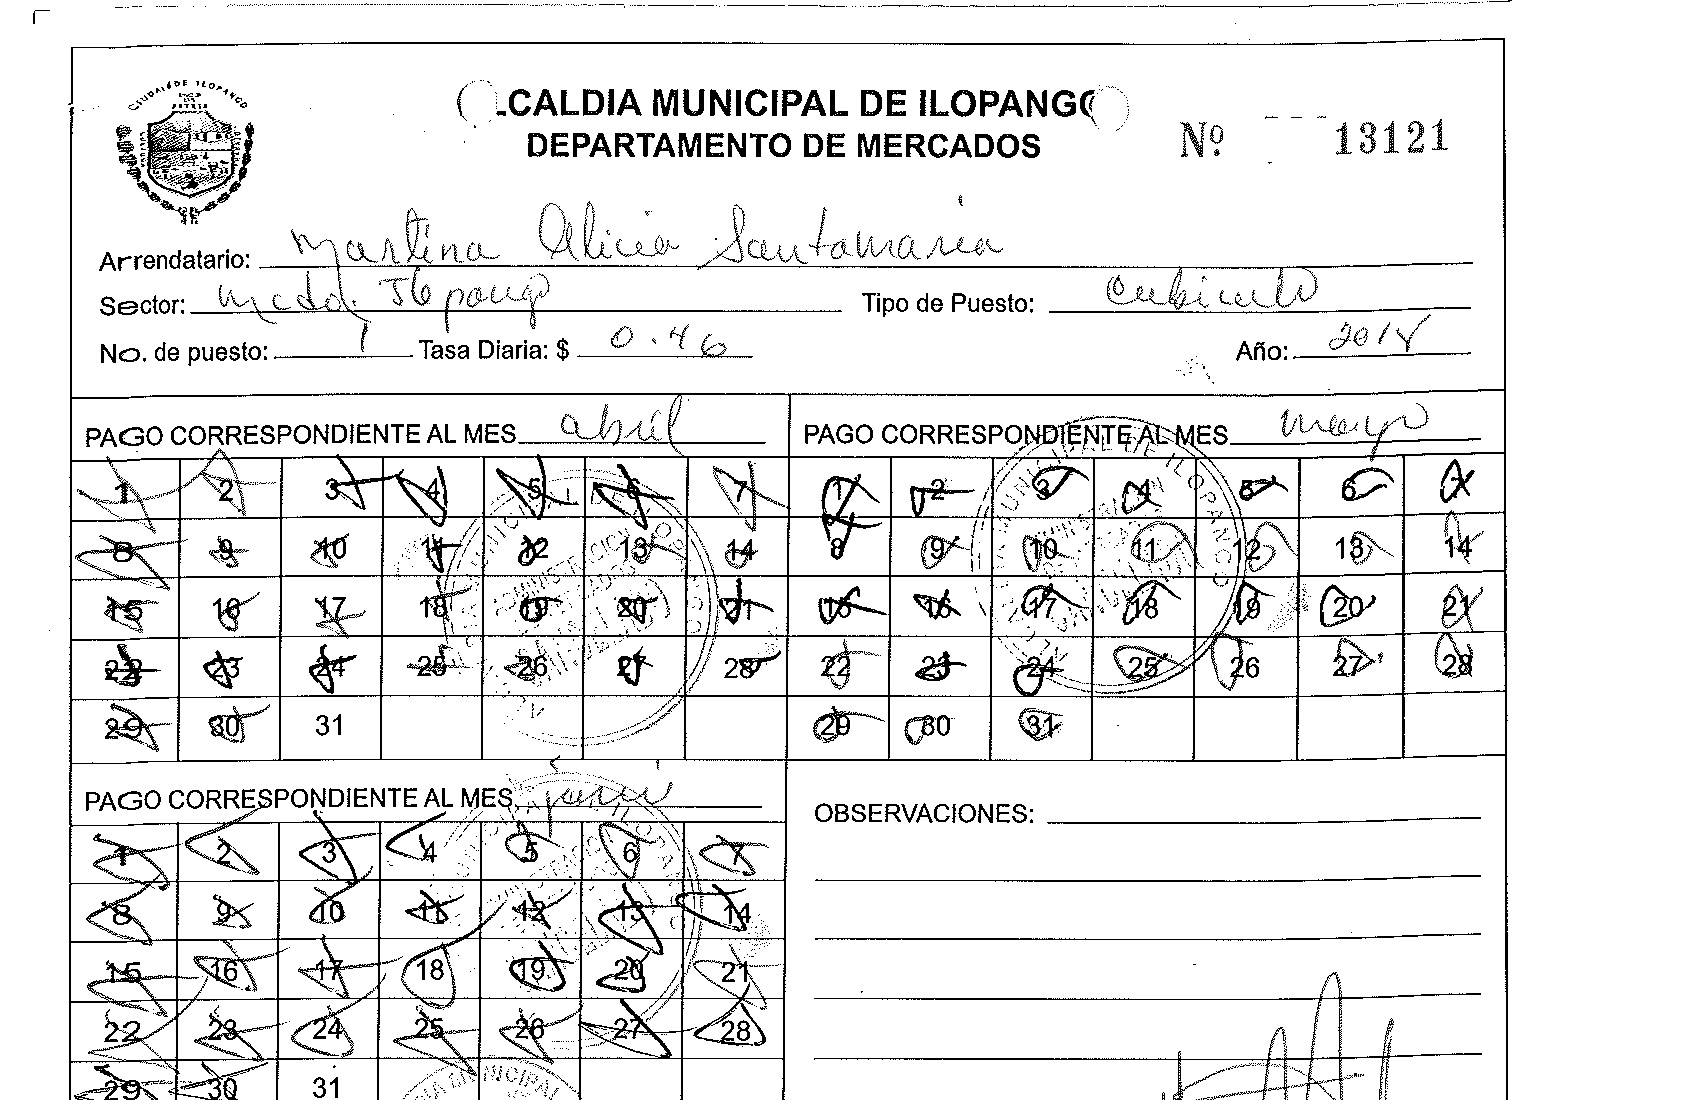 CIUDAD DE ILOPANGO
ALCALDIA MUNICIPAL DE ILOPANGO
DEPARTAMENTO DE MERCADOS
Nº 13121
Arrendatario: Martina Alicia Santamaria
Sector: Mcdo. Ilopango Tipo de Puesto: Cubiculo
No. de puesto: 1 Tasa Diaria: $ 0.46 Año: 2018
PAGO CORRESPONDIENTE AL MES abril PAGO CORRESPONDIENTE AL MES mayo
1 2 3 4 5 6 7 1 2 3 4 5 6 7
8 9 10 11 12 13 14 8 9 10 11 12 13 14
15 16 17 18 19 20 21 15 16 17 18 19 20 21
22 23 24 25 26 27 28 22 23 24 25 26 27 28
29 30 31 29 30 31
PAGO CORRESPONDIENTE AL MES junio OBSERVACIONES:
1 2 3 4 5 6 7
8 9 10 11 12 13 14
15 16 17 18 19 20 21
22 23 24 25 26 27 28
29 30 31